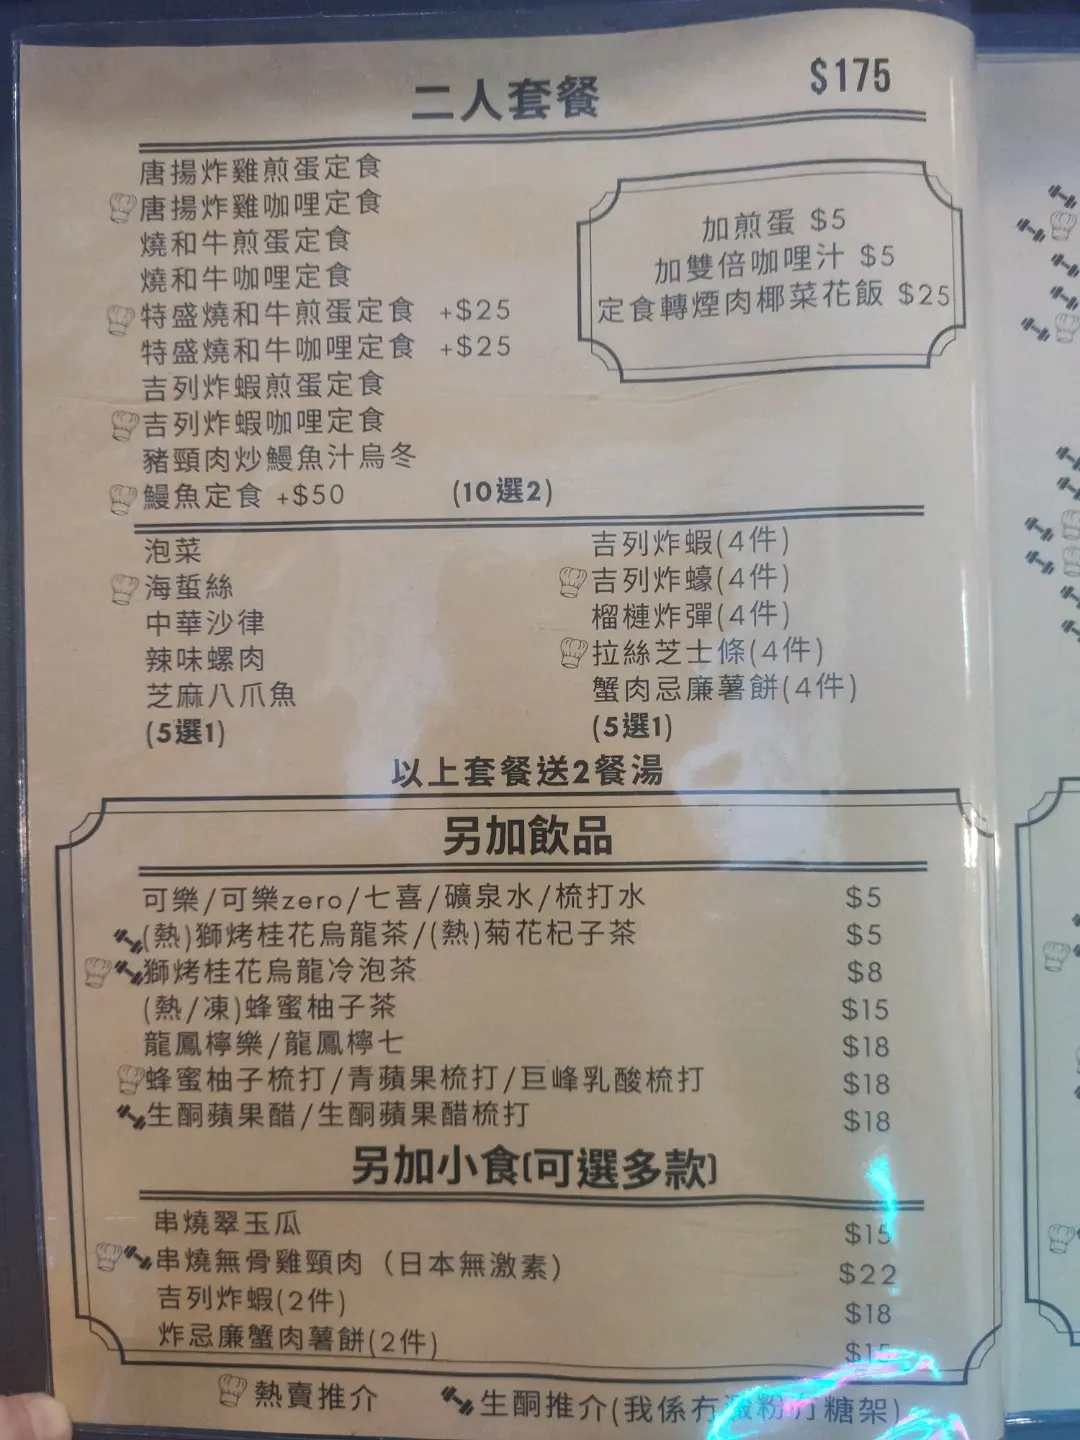 二人套餐 $175
唐揚炸雞煎蛋定食
唐揚炸雞咖哩定食
燒和牛煎蛋定食
燒和牛咖哩定食
特盛燒和牛煎蛋定食 +$25
特盛燒和牛咖哩定食 +$25
吉列炸蝦煎蛋定食
吉列炸蝦咖哩定食
豬頸肉炒鰻魚汁烏冬
鰻魚定食 +$50 (10選2)
加煎蛋 $5
加雙倍咖哩汁 $5
定食轉煙肉椰菜花飯 $25
泡菜
海蜇絲
中華沙律
辣味螺肉
芝麻八爪魚
(5選1)
吉列炸蝦(4件)
吉列炸蠔(4件)
榴槤炸彈(4件)
拉絲芝士條(4件)
蟹肉忌廉薯餅(4件)
(5選1)
以上套餐送2餐湯
另加飲品
可樂/可樂zero/七喜/礦泉水/梳打水 $5
(熱)獅烤桂花烏龍茶/(熱)菊花杞子茶 $5
獅烤桂花烏龍冷泡茶 $8
(熱/凍)蜂蜜柚子茶 $15
龍鳳檸樂/龍鳳檸七 $18
蜂蜜柚子梳打/青蘋果梳打/巨峰乳酸梳打 $18
生酮蘋果醋/生酮蘋果醋梳打 $18
另加小食(可選多款)
串燒翠玉瓜 $15
串燒無骨雞頸肉（日本無激素） $22
吉列炸蝦(2件) $18
炸忌廉蟹肉薯餅(2件) $15
熱賣推介
生酮推介(我係冇澱粉冇糖架)